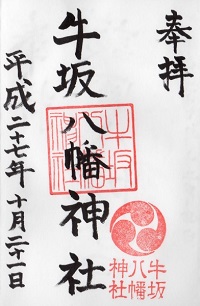 奉拝
牛坂八幡神社
平成二十七年十月二十一日
牛坂
八幡
神社